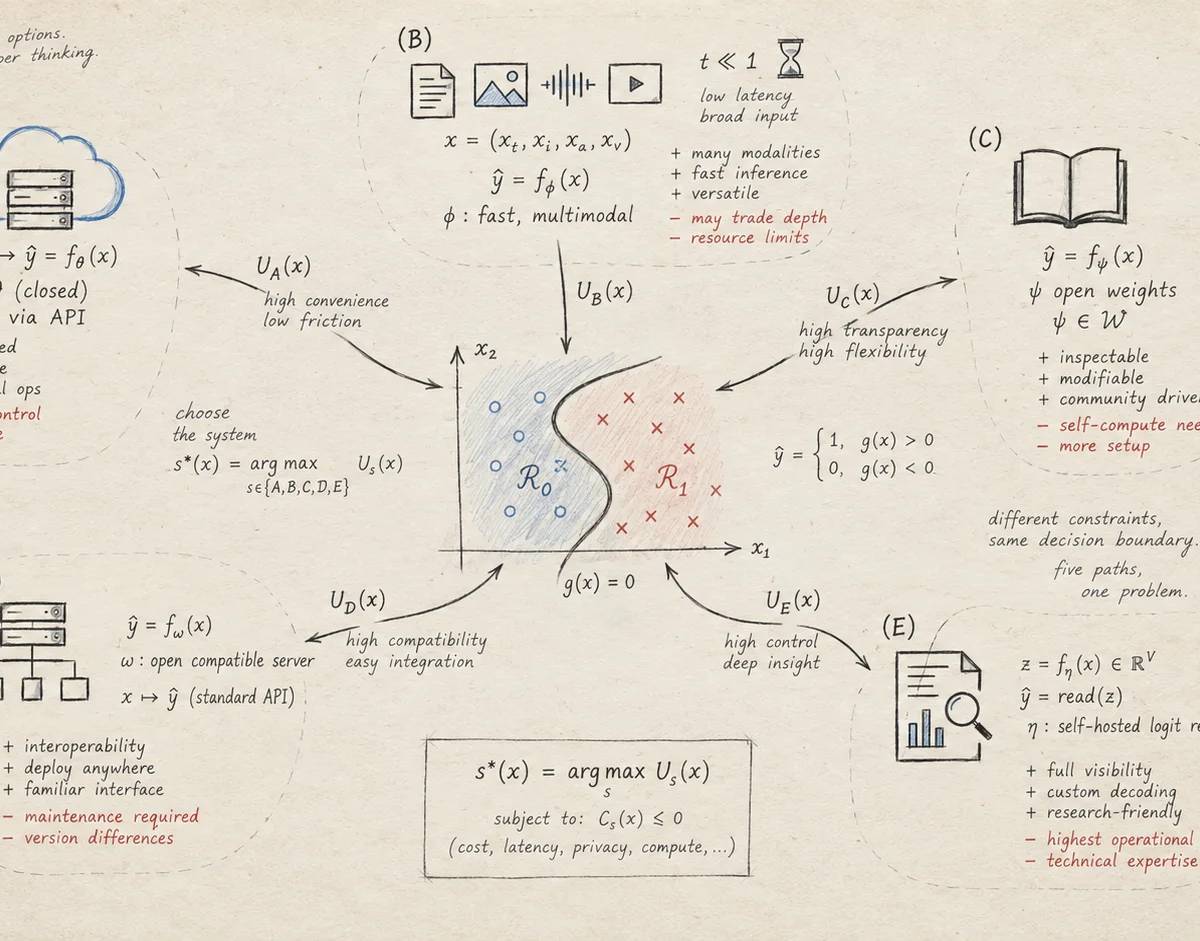 options.
per thinking.
(B)
t ≪ 1
low latency
broad input
x = (xₜ, xᵢ, xₐ, xᵥ)
ŷ = f_ϕ(x)
ϕ : fast, multimodal
+ many modalities
+ fast inference
+ versatile
− may trade depth
− resource limits
→ ŷ = f_θ(x)
(closed)
via API
ed
e
l ops
ontrol
e
U_A(x)
high convenience
low friction
U_B(x)
U_C(x)
high transparency
high flexibility
(C)
ŷ = f_ψ(x)
ψ open weights
ψ ∈ 𝒲
+ inspectable
+ modifiable
+ community drive
− self-compute nee
− more setup
choose
the system
s*(x) = arg max U_s(x)
s∈{A,B,C,D,E}
x₂
ℛ₀
ℛ₁
x₁
g(x) = 0
ŷ = { 1, g(x) > 0
0, g(x) < 0
different constraints,
same decision boundary.
five paths,
one problem.
U_D(x)
high compatibility
easy integration
U_E(x)
high control
deep insight
ŷ = f_ω(x)
ω : open compatible server
x ↦ ŷ (standard API)
+ interoperability
+ deploy anywhere
+ familiar interface
− maintenance required
− version differences
(E)
z = f_η(x) ∈ ℝⱽ
ŷ = read(z)
η : self-hosted logit re
+ full visibility
+ custom decoding
+ research-friendly
− highest operational
− technical expertise
s*(x) = arg max U_s(x)
s
subject to: C_s(x) ⩽ 0
(cost, latency, privacy, compute, ...)